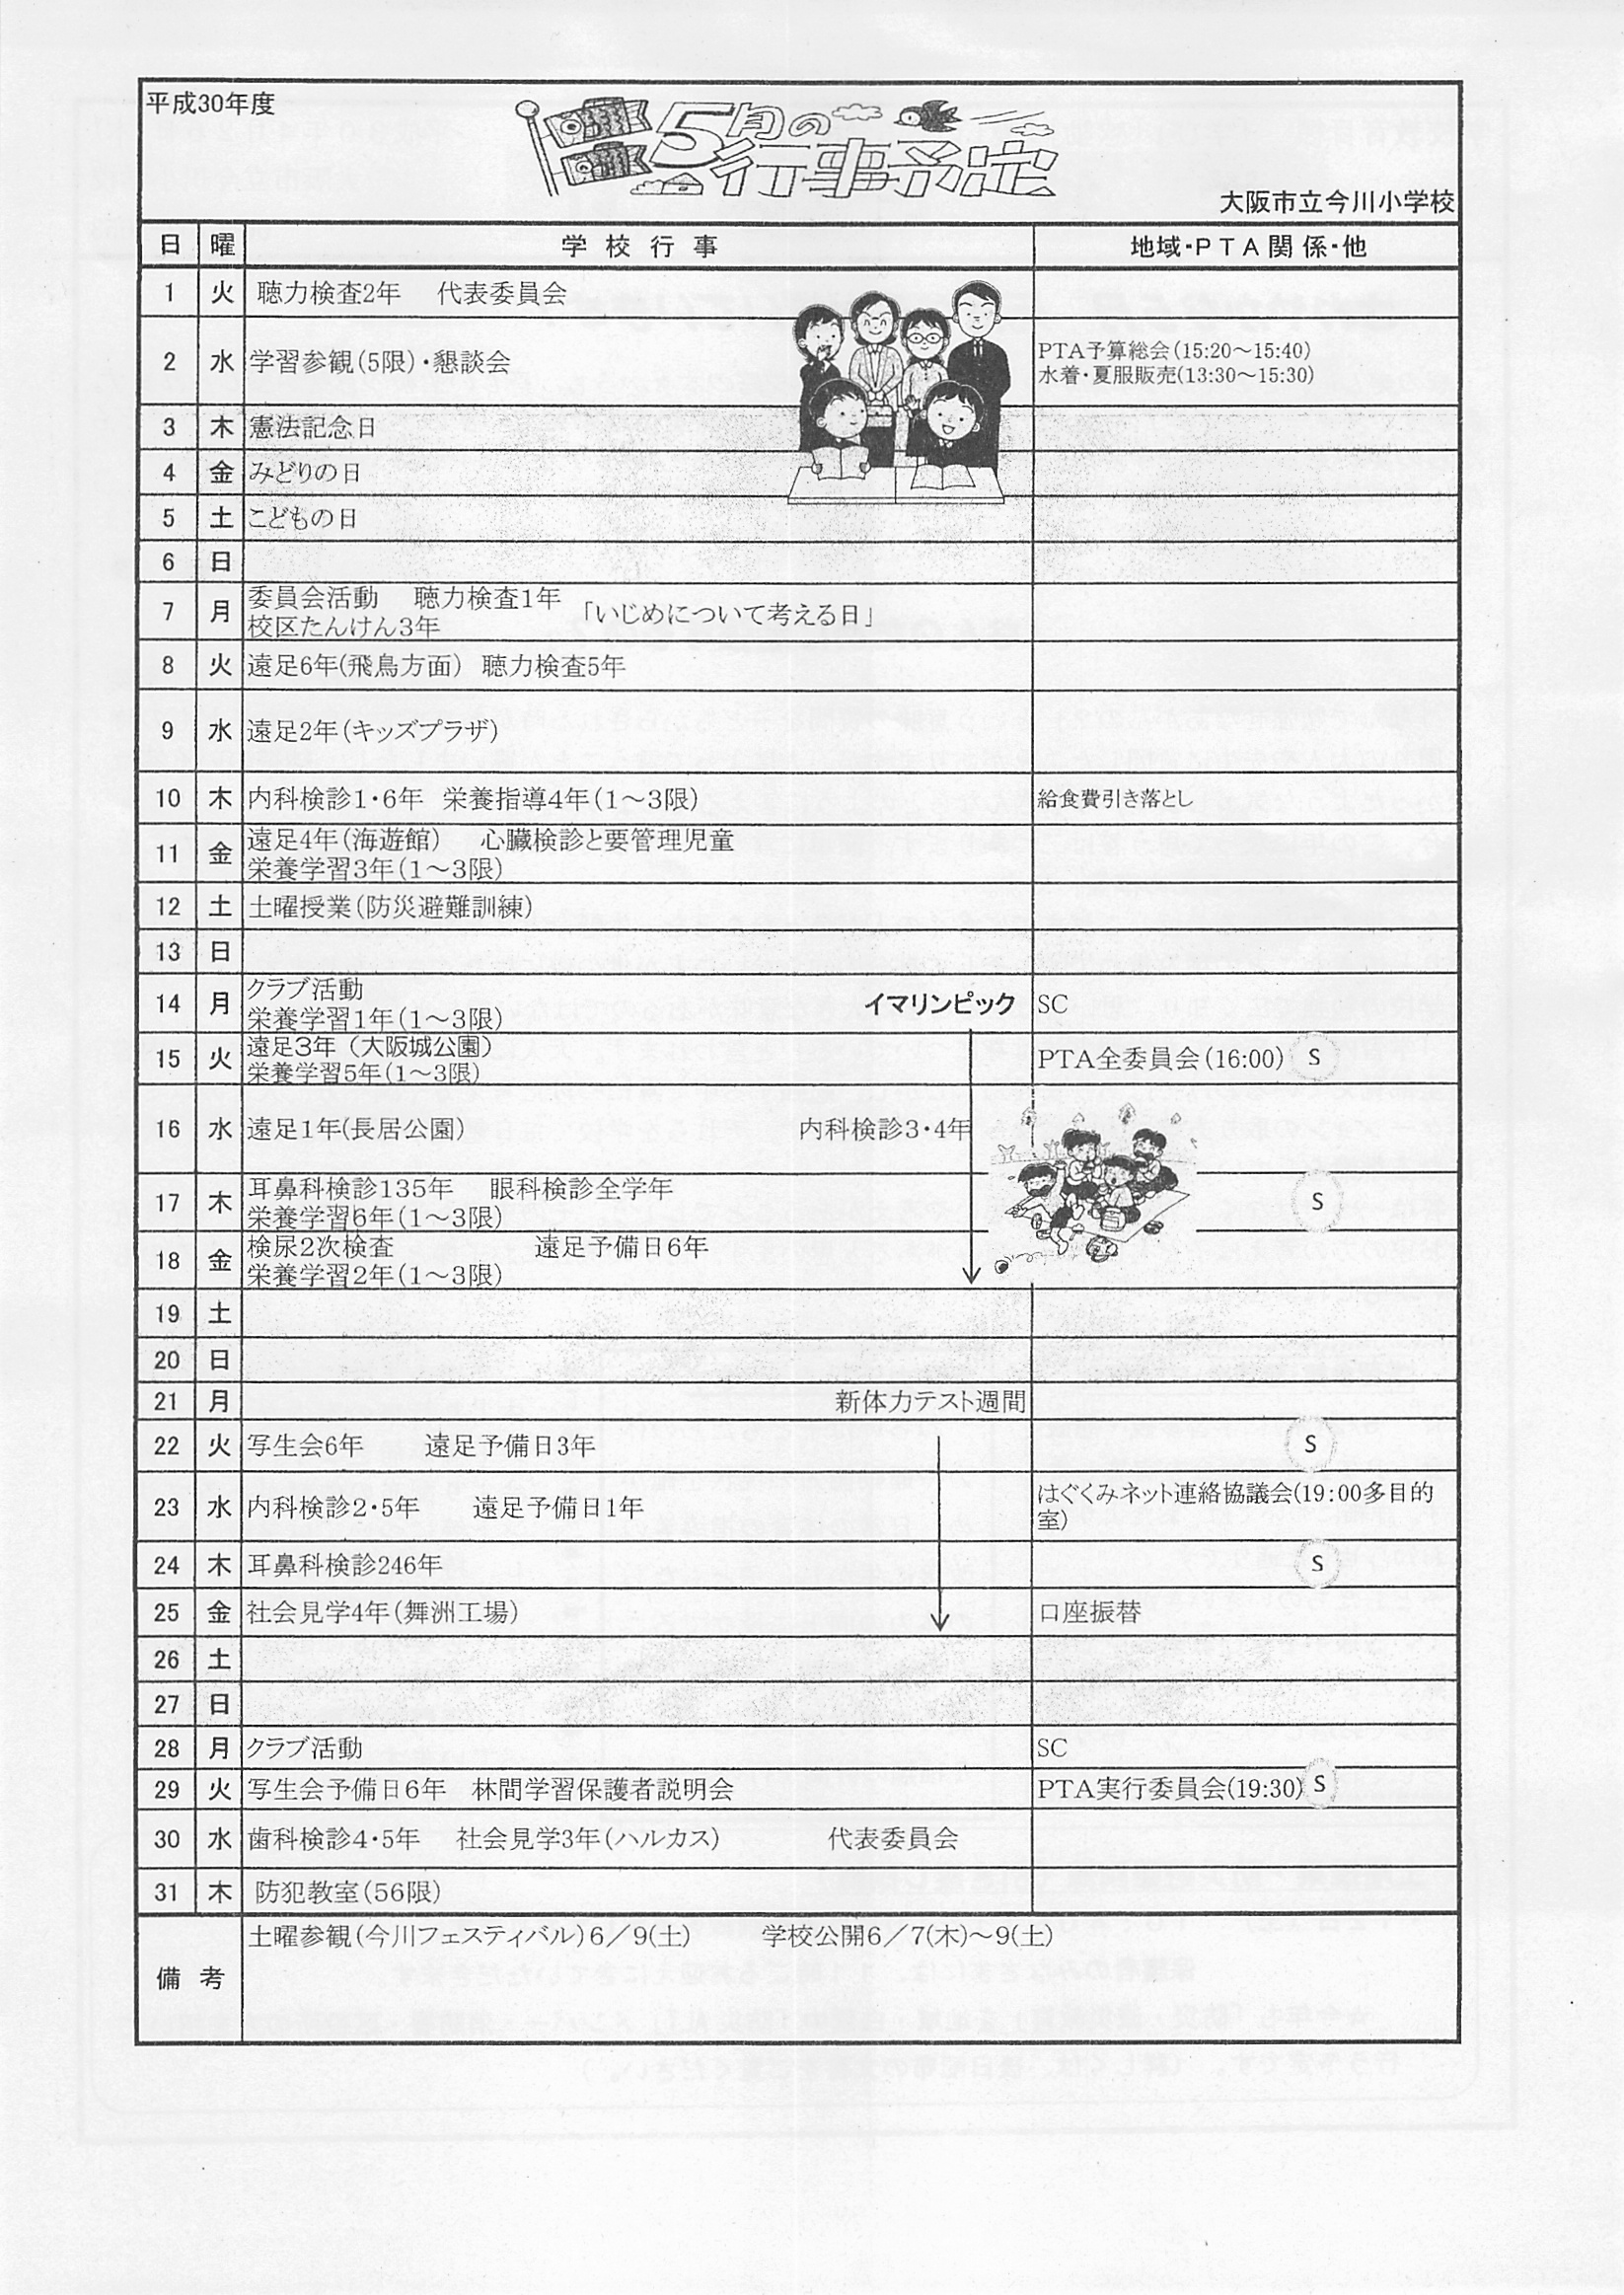 平成30年度
5月の
行事予定
大阪市立今川小学校
日 曜 学校行事 地域・PTA関係・他
1 火 聴力検査2年 代表委員会
2 水 学習参観(5限)・懇談会 PTA予算総会(15:20～15:40)
水着・夏服販売(13:30～15:30)
3 木 憲法記念日
4 金 みどりの日
5 土 こどもの日
6 日
7 月 委員会活動 聴力検査1年 「いじめについて考える日」
校区たんけん3年
8 火 遠足6年(飛鳥方面) 聴力検査5年
9 水 遠足2年(キッズプラザ)
10 木 内科検診1・6年 栄養指導4年(1～3限) 給食費引き落とし
11 金 遠足4年(海遊館) 心臓検診と要管理児童
栄養学習3年(1～3限)
12 土 土曜授業(防災避難訓練)
13 日
14 月 クラブ活動 イマリンピック SC
栄養学習1年(1～3限)
15 火 遠足3年(大阪城公園) PTA全委員会(16:00) S
栄養学習5年(1～3限)
16 水 遠足1年(長居公園) 内科検診3・4年
17 木 耳鼻科検診135年 眼科検診全学年 S
栄養学習6年(1～3限)
18 金 検尿2次検査 遠足予備日6年
栄養学習2年(1～3限)
19 土
20 日
21 月 新体力テスト週間
22 火 写生会6年 遠足予備日3年 S
23 水 内科検診2・5年 遠足予備日1年 はぐくみネット連絡協議会(19:00多目的
室)
24 木 耳鼻科検診246年 S
25 金 社会見学4年(舞洲工場) 口座振替
26 土
27 日
28 月 クラブ活動 SC
29 火 写生会予備日6年 林間学習保護者説明会 PTA実行委員会(19:30) S
30 水 歯科検診4・5年 社会見学3年(ハルカス) 代表委員会
31 木 防犯教室(56限)
備考 土曜参観(今川フェスティバル)6／9(土) 学校公開6／7(木)～9(土)